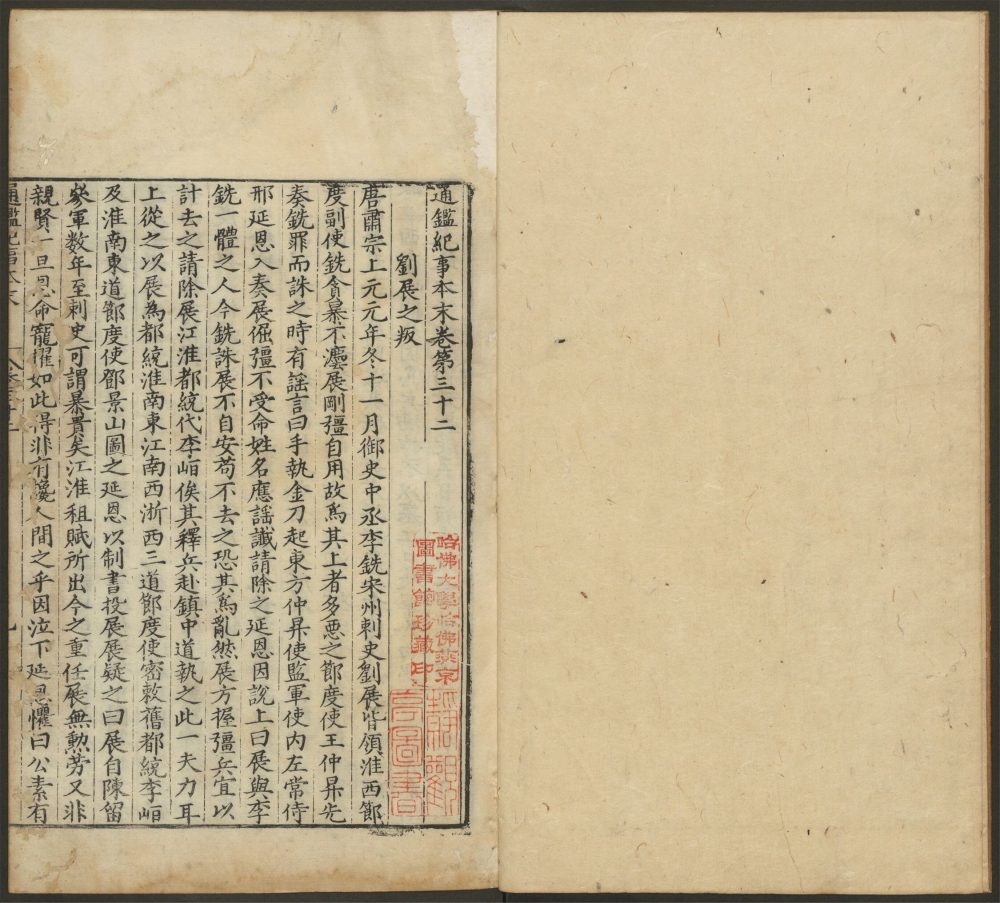 通鑑紀事本末卷第三十二
劉展之叛
唐肅宗上元元年冬十一月御史中丞李銑宋州刺史劉展皆領淮西節
度副使銑貪暴不灋展剛彊自用故爲其上者多惡之節度使王仲昇先
奏銑罪而誅之時有謡言曰手執金刀起東方仲昇使監軍使内左常侍
邢延恩入奏展倔彊不受命姓名應謡讖請除之延恩因說上曰展與李
銑一體之人今銑誅展不自安苟不去之恐其爲亂然展方握彊兵宜以
計去之請除展江淮都統代李峘俟其釋兵赴鎮中道執之此一夫力耳
上從之以展爲都統淮南東江南西浙西三道節度使密敕舊都統李峘
及淮南東道節度使鄧景山圖之延恩以制書授展展疑之曰展自陳留
參軍数年至刺史可謂暴貴矣江淮租賦所出今之重任展無勲勞又非
親賢一旦恩命寵擢如此得非有讒人間之乎因泣下延恩懼曰公素有
通鑑紀事本末
哈佛大學哈佛燕京
圖書館珍藏印
圖書